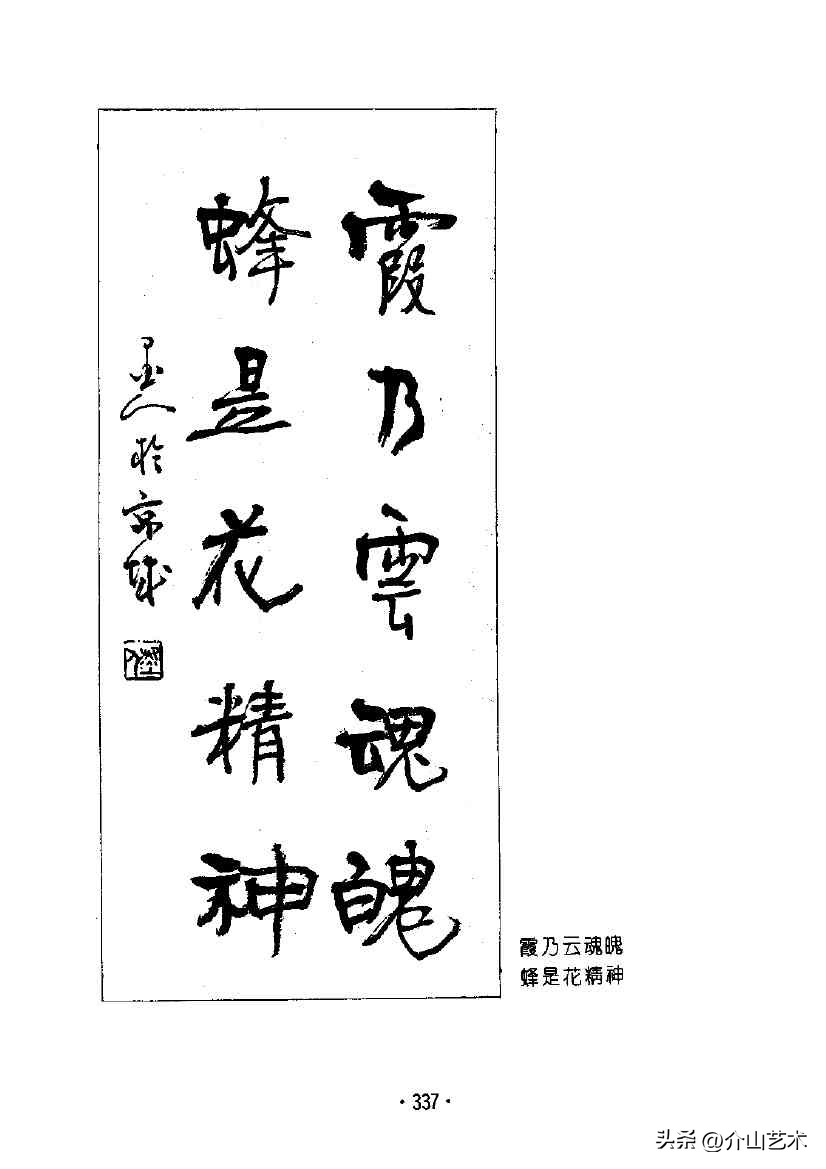 霞乃雲魂魄
蜂是花精神
墨人於京城
霞乃云魂魄
蜂是花精神
·337·
头条 @介山艺术